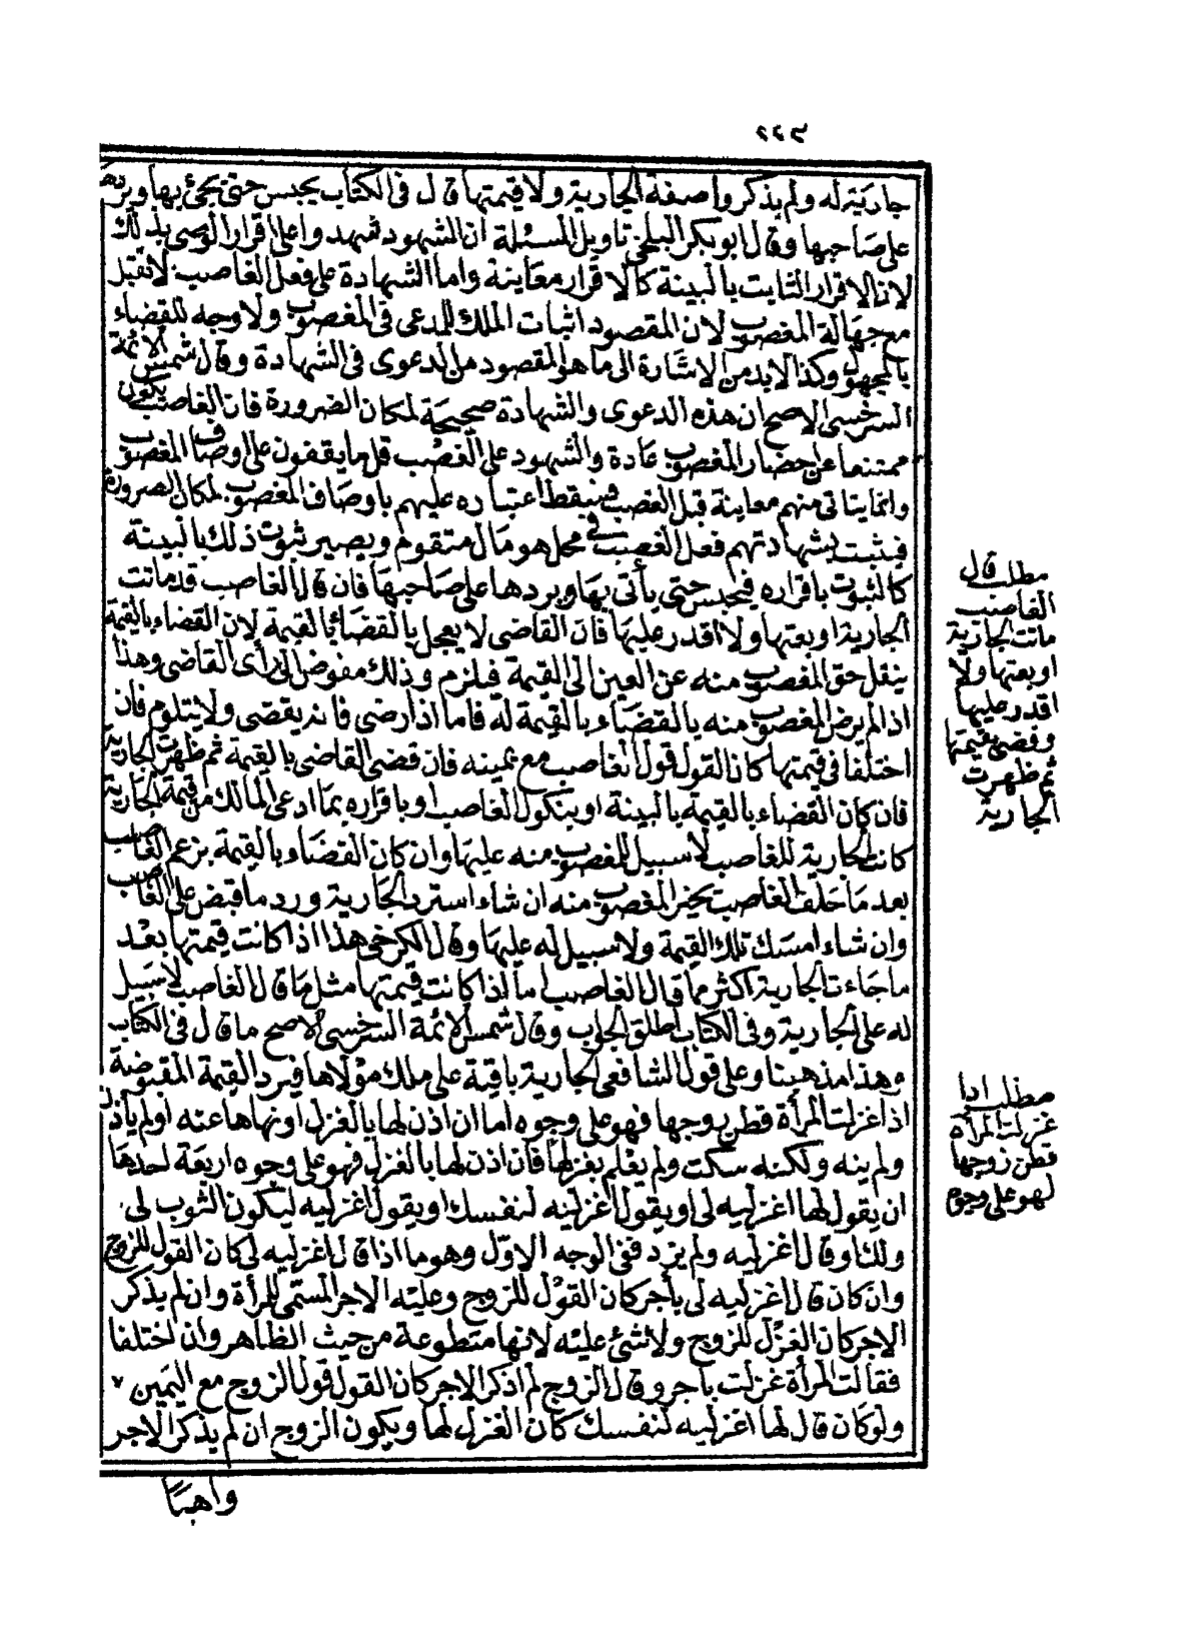 ٢٢٣
جارية له ولم يذكروا صفة الجارية ولا قيمتها قال فى الكتاب يحبس حتى يجئ بها ويردها
على صاحبها وقال ابو بكر البلخى تاويل المسئلة ان الشهود شهدوا على اقرار الوصى بذلك
لان الاقرار الثابت بالبينة كالاقرار معاينة واما الشهادة على فعل الغاصب لا تقبل
مع جهالة المغصوب لان المقصود اثبات الملك للمدعى فى المغصوب ولا وجه للقضاء
بالمجهول وكذا لا بد من الاشارة الى ما هو المقصود من الدعوى فى الشهادة وقال شمس الائمة
السرخسى الاصح ان هذه الدعوى والشهادة صحيحة لمكان الضرورة فان الغاصب يكون
ممتنعا عن احضار المغصوب عادة والشهود على الغصب قل ما يقفون على اوصاف المغصوب
وانما يتاتى منهم معاينة فعل الغصب فيسقط اعتباره عليهم باوصاف المغصوب لمكان الضرورة
فيثبت بشهادتهم فعل الغصب فى محل هو مال متقوم ويصير ثبوت ذلك بالبينة
كالثبوت باقراره فيحبس حتى يأتى بها ويردها على صاحبها فان قال الغاصب قد ماتت
الجارية او بعتها ولا اقدر عليها فان القاضى لا يعجل بالقضاء بالقيمة لان القضاء بالقيمة
ينقل حق المغصوب منه عن العين الى القيمة فيلزم وذلك مفوض الى رأى القاضى وهذا
اذا لم يرض المغصوب منه بالقضاء بالقيمة له فاما اذا رضى فانه يقضى ولا يتلوم فان
اختلفا فى قيمتها كان القول قول الغاصب مع يمينه فان قضى القاضى بالقيمة ثم ظهرت الجارية
فان كان القضاء بالقيمة بالبينة او بنكول الغاصب او باقراره بما ادعى المالك من قيمة الجارية
كانت الجارية للغاصب لا سبيل للمغصوب منه عليها وان كان القضاء بالقيمة بزعم الغاصب
بعد ما حلف الغاصب يخير المغصوب منه ان شاء استرد الجارية ورد ما قبض على الغاصب
وان شاء امسك تلك القيمة ولا سبيل له عليها وقال الكرخى هذا اذا كانت قيمتها بعد
ما جاءت الجارية اكثر مما قال الغاصب اما اذا كانت قيمتها مثل ما قال الغاصب لا سبيل
له على الجارية وفى الكتاب اطلق الجواب وقال شمس الائمة السرخسى الاصح ما قال فى الكتاب
وهذا مذهبنا وعلى قول الشافعى الجارية باقية على ملك مولاها فيرد القيمة المقبوضة
اذا غزلت المرأة قطن زوجها فهو على وجوه اما ان اذن لها بالغزل او نهاها عنه او لم يأذن
ولم ينه ولكنه سكت ولم يعلم بغزلها فان اذن لها بالغزل فهو على وجوه اربعة احدها
ان يقول لها اغزليه لى او يقول اغزليه لنفسك او يقول اغزليه ليكون الثوب لى
ولك او قال اغزليه ولم يزد ففى الوجه الاول وهو ما اذا قال اغزليه لى كان القول للزوج
وان كان قال اغزليه لى باجر كان القول للزوج وعليه الاجر المسمى للمرأة وان لم يذكر
الاجر كان الغزل للزوج ولا شئ عليه لانها متطوعة من حيث الظاهر وان اختلفا
فقالت المرأة غزلت باجر وقال الزوج لم اذكر الاجر كان القول قول الزوج مع اليمين
ولو كان قال لها اغزليه لنفسك كان الغزل لها ويكون الزوج ان لم يذكر الاجر
واهبًا
مطلب قال
الغاصب
ماتت الجارية
او بعتها ولا
اقدر عليها
وقضى بقيمتها
ثم ظهرت
الجارية
مطلب اذا
غزلت المرأة
قطن زوجها
فهو على وجوه